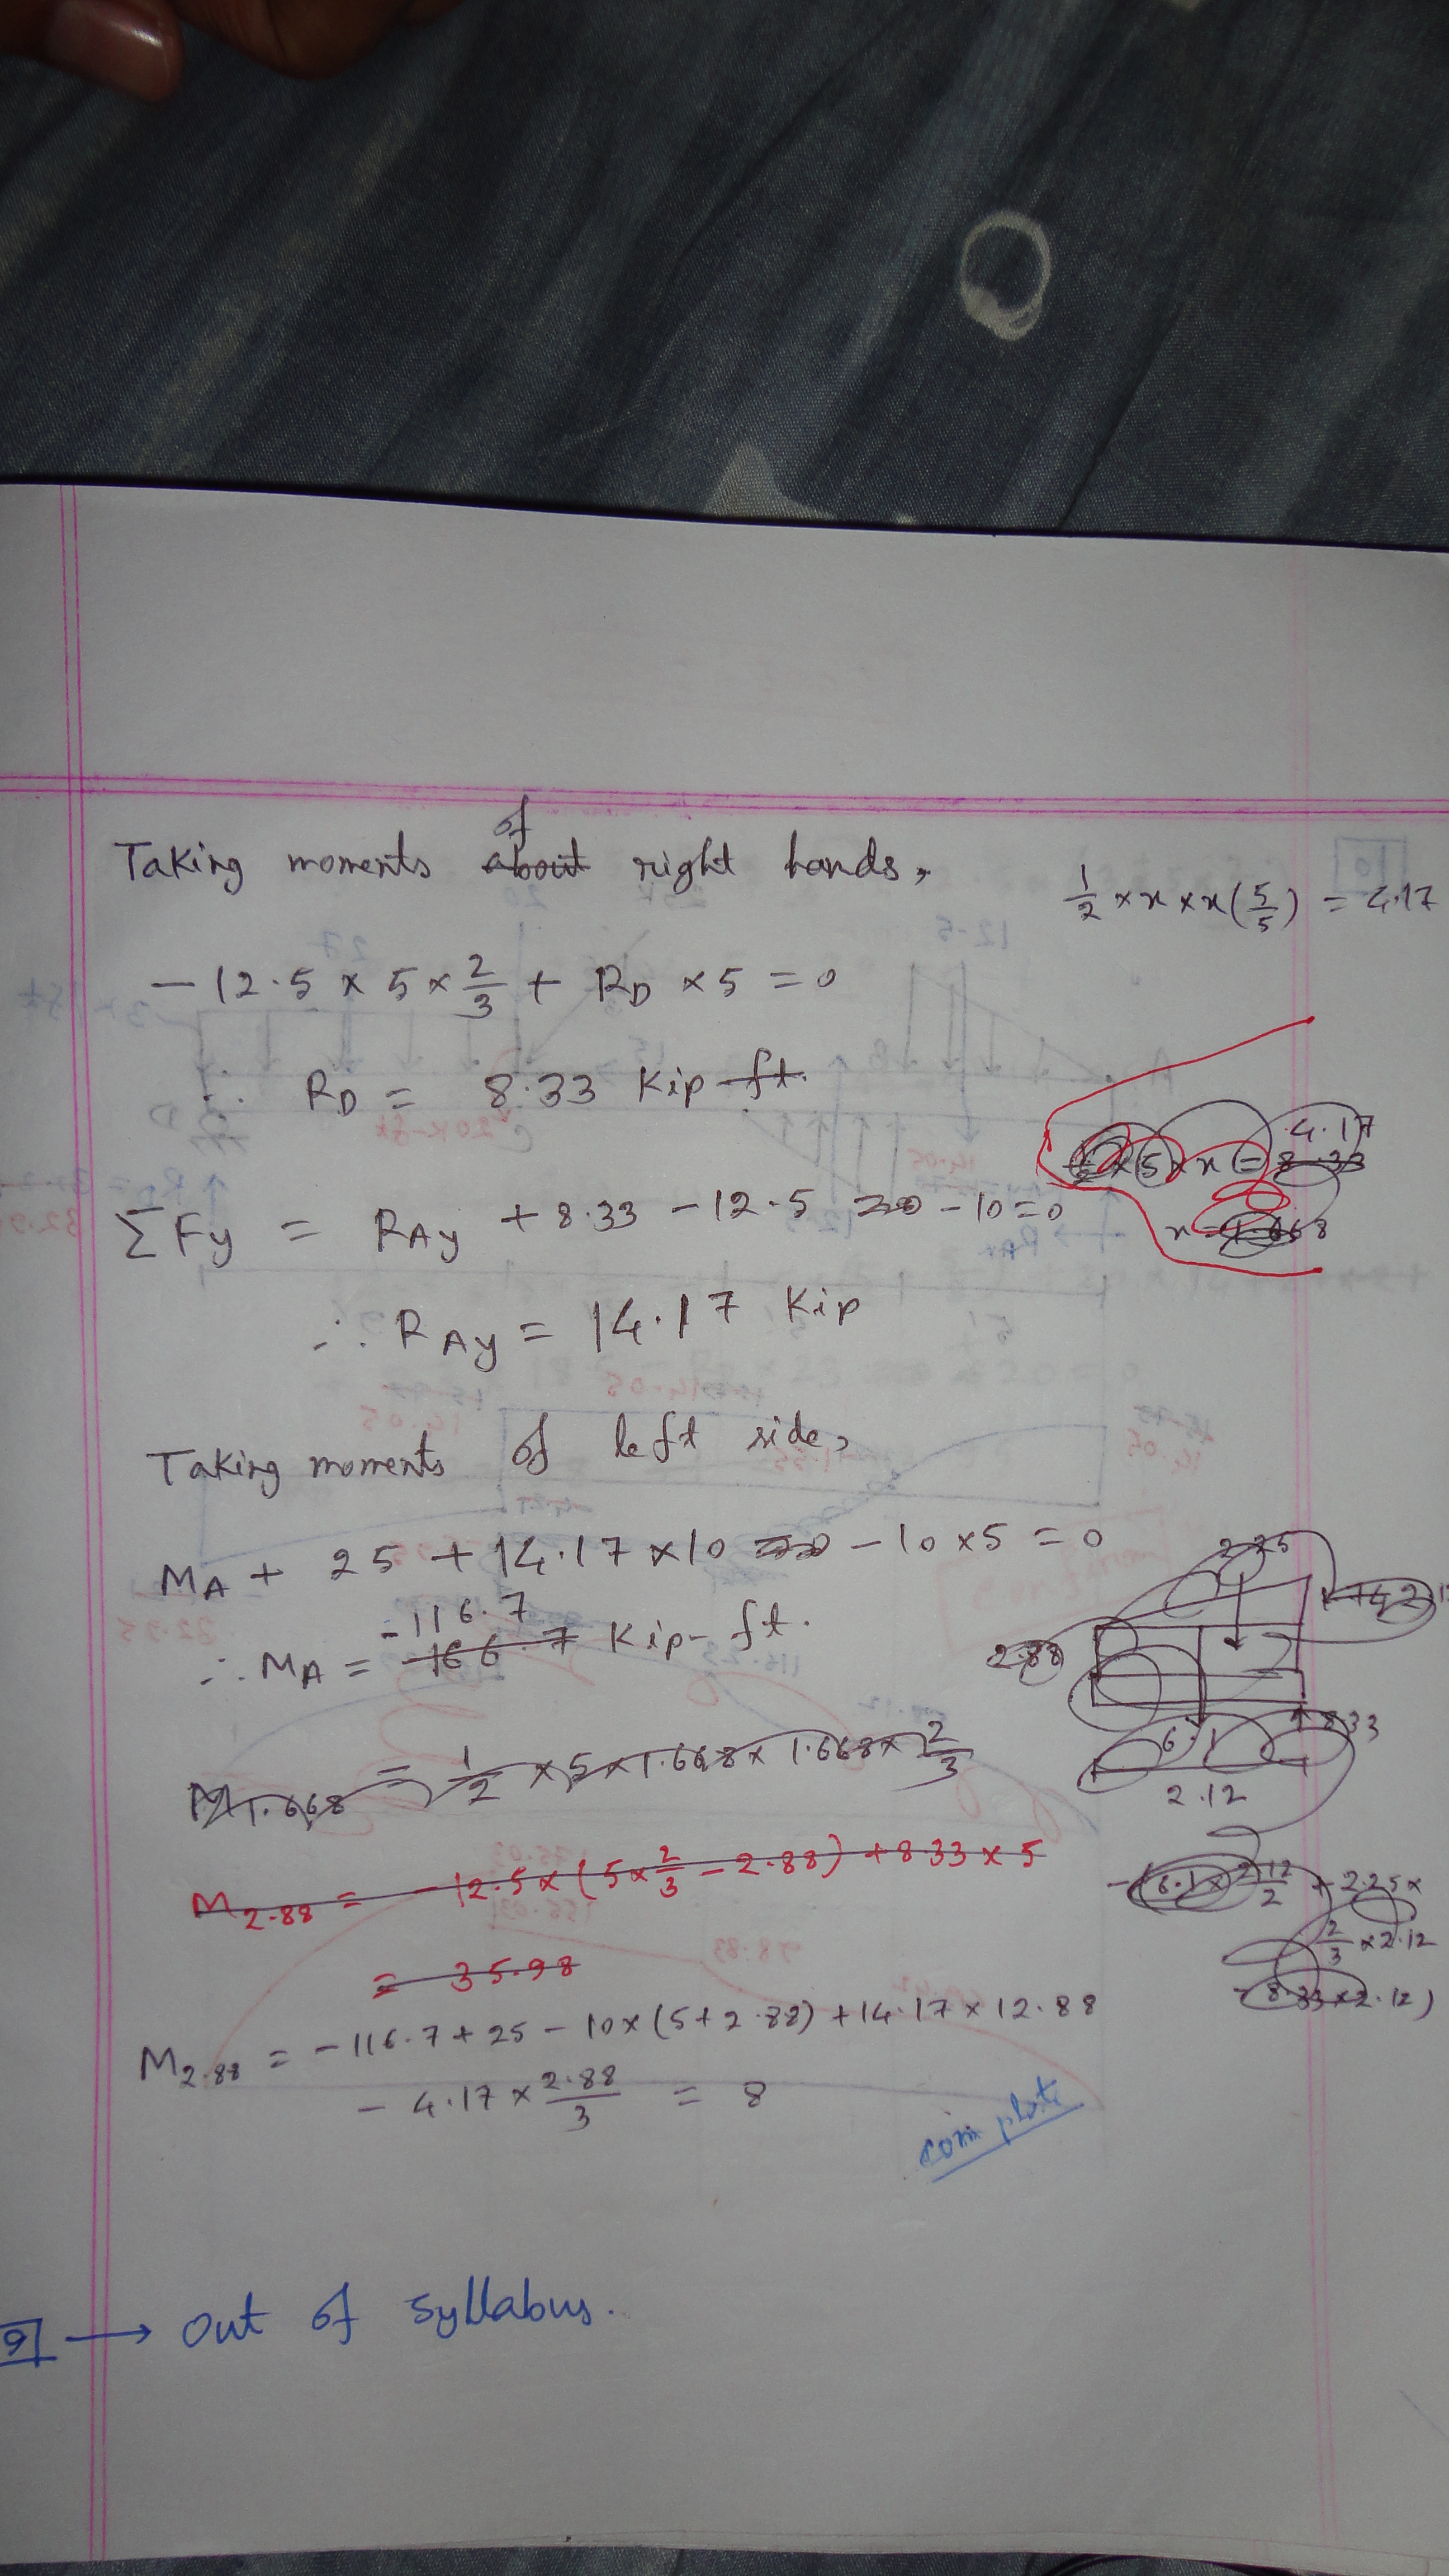 Taking moments about of right hands,
1/2 × x × x (5/5) = 4.17
- 12.5 × 5 × 2/3 + RD × 5 = 0
∴ RD = 8.33 Kip-ft.
4.17
× 5 × x = 8.33
ΣFy = RAy + 8.33 - 12.5 - 10 = 0
x = 1.668
∴ RAy = 14.17 Kip
Taking moments of left side,
MA + 25 + 14.17 × 10 - 10 × 5 = 0
-116.7
∴ MA = 166.7 Kip-ft.
2.25
2.88
6.1
8.33
2.12
M1.668 = 1/2 × 5 × 1.668 × 1.668 × 2/3
M2.88 = -12.5 × (5 × 2/3 - 2.88) + 8.33 × 5
= 35.98
-(6.1 × 2.12/2 + 2.25 ×
2/3 × 2.12
- 8.33 × 2.12)
M2.88 = -116.7 + 25 - 10 × (5 + 2.88) + 14.17 × 12.88
- 4.17 × 2.88/3 = 8
9 → Out of syllabus.